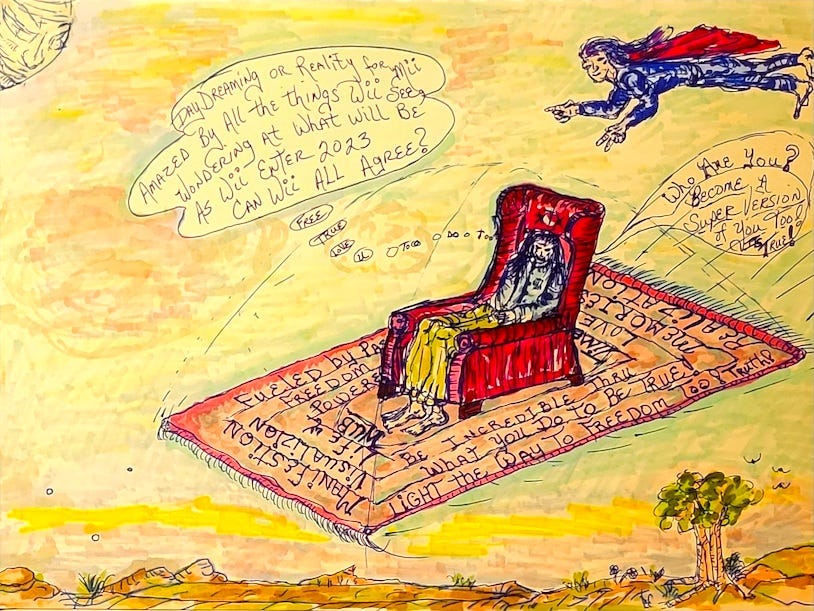 DAYDREAMING OR REALITY for Mii
AMAZED BY All THE THINGS Wii SEE
WONDERING AT WHAT WILL BE
AS Wii ENTER 2023
CAN Wii ALL AGREE?
FREE
TRUE
LOVE
DO
TOO
WHO ARE YOU?
BECOME A
SUPER VERSION
OF YOU TOO!
TRUE!
FUELED BY
FREEDOM
POWER
MANIFESTION
VISUALIZION
BE INCREDIBLE THRU
WHAT YOU DO TO BE TRUE!
LIGHT THE WAY TO FREEDOM TOO!
MEMORIES
REALIZATION